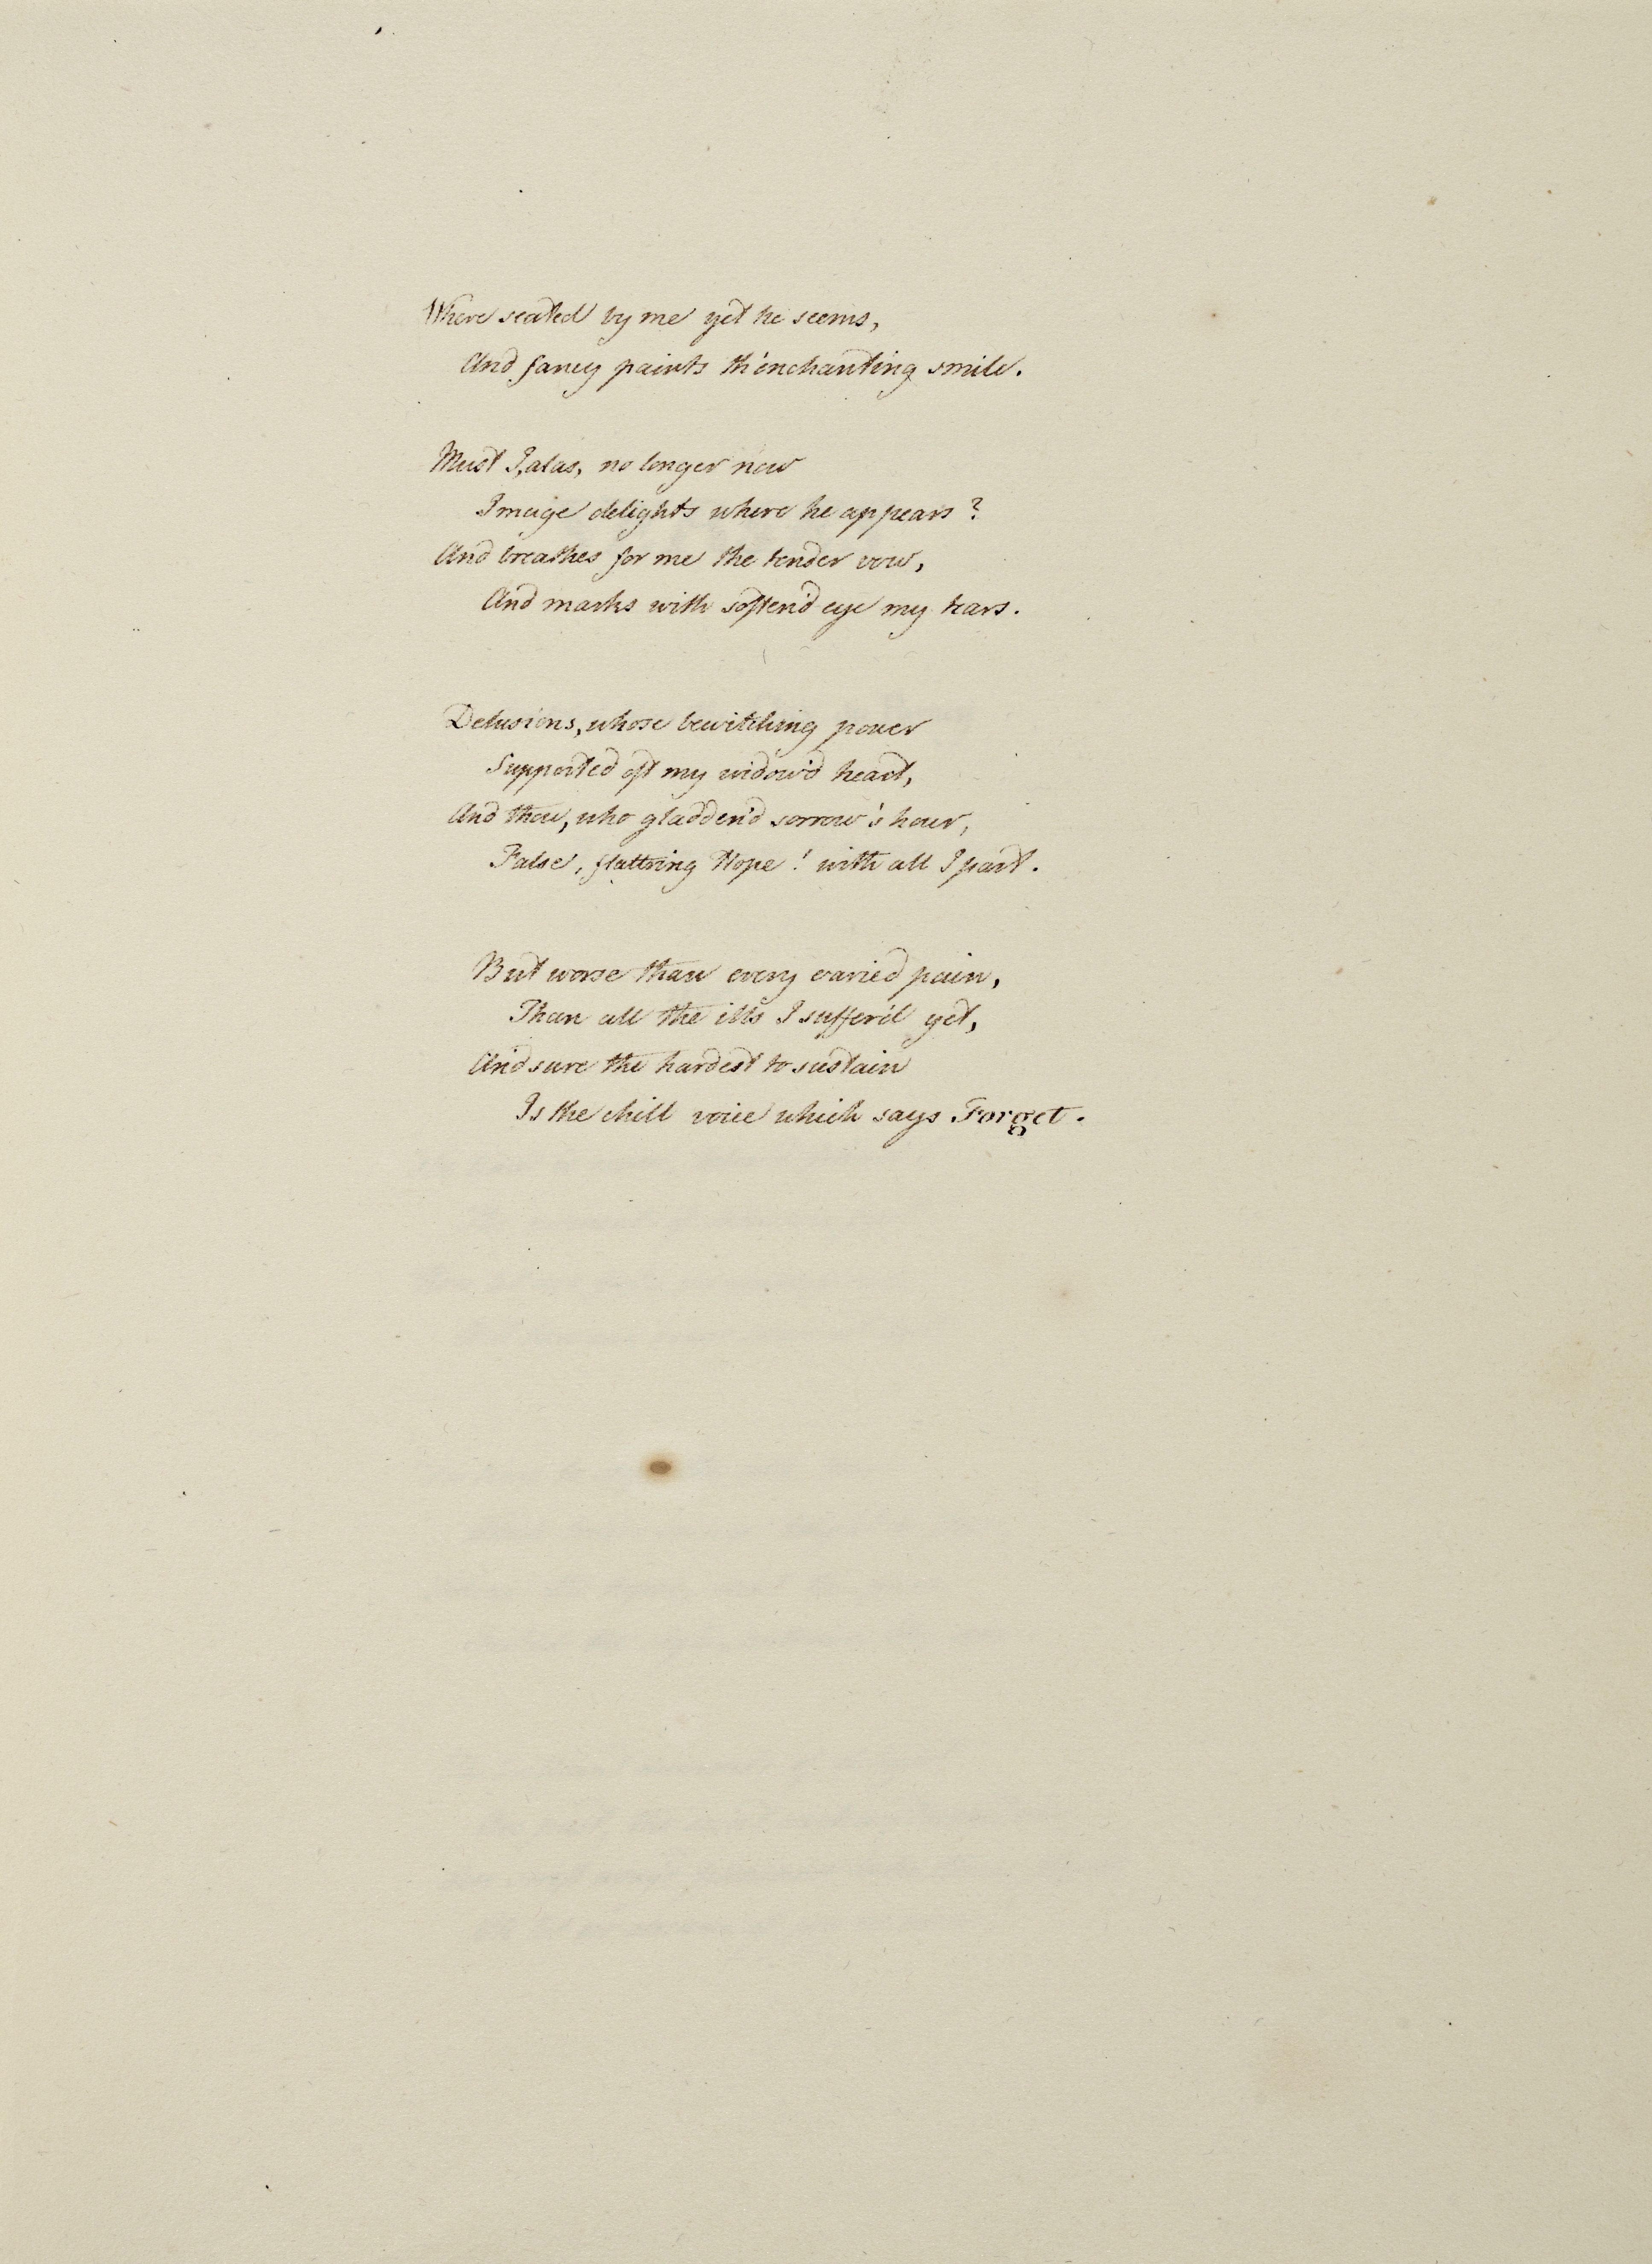 Where seated by me yet he seems,
And fancy paints th'enchanting smile.
Must I, alas, no longer now
Image delights where he appears?
And breathes for me the tender vow,
And marks with soften'd eye my tears.
Delusions, whose bewitching power
Supported oft my widow'd heart,
And thou, who gladden'd sorrow's hour,
False, flatt'ring Hope! with all I part.
But worse than every varied pain,
Than all the ills I suffer'd yet,
And sure the hardest to sustain
Is the chill voice which says Forget.